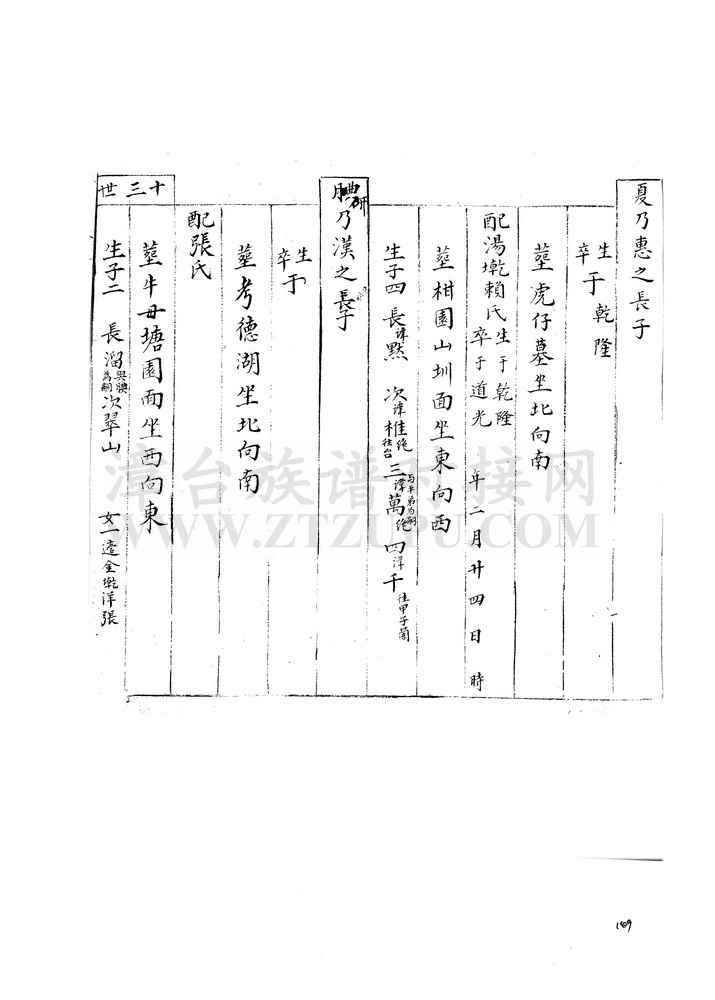 夏乃惠之長子
生
卒于乾隆
塟虎仔墓坐北向南
配湯墘賴氏生于乾隆
卒于道光 年二月廿四日 時
塟柑園山圳面坐東向西
生子四 長諱黙 次諱椎往台 三諱萬 四諱千往甲子蘭
乃漢之長子
生
卒于
塟考德湖坐北向南
配張氏
塟牛毋塘園面坐西向東
十三世
生子二 長溜為嗣 次翠山 女一適金墘洋張
漳台族谱对接网
WWW.ZTZUPU.COM
189